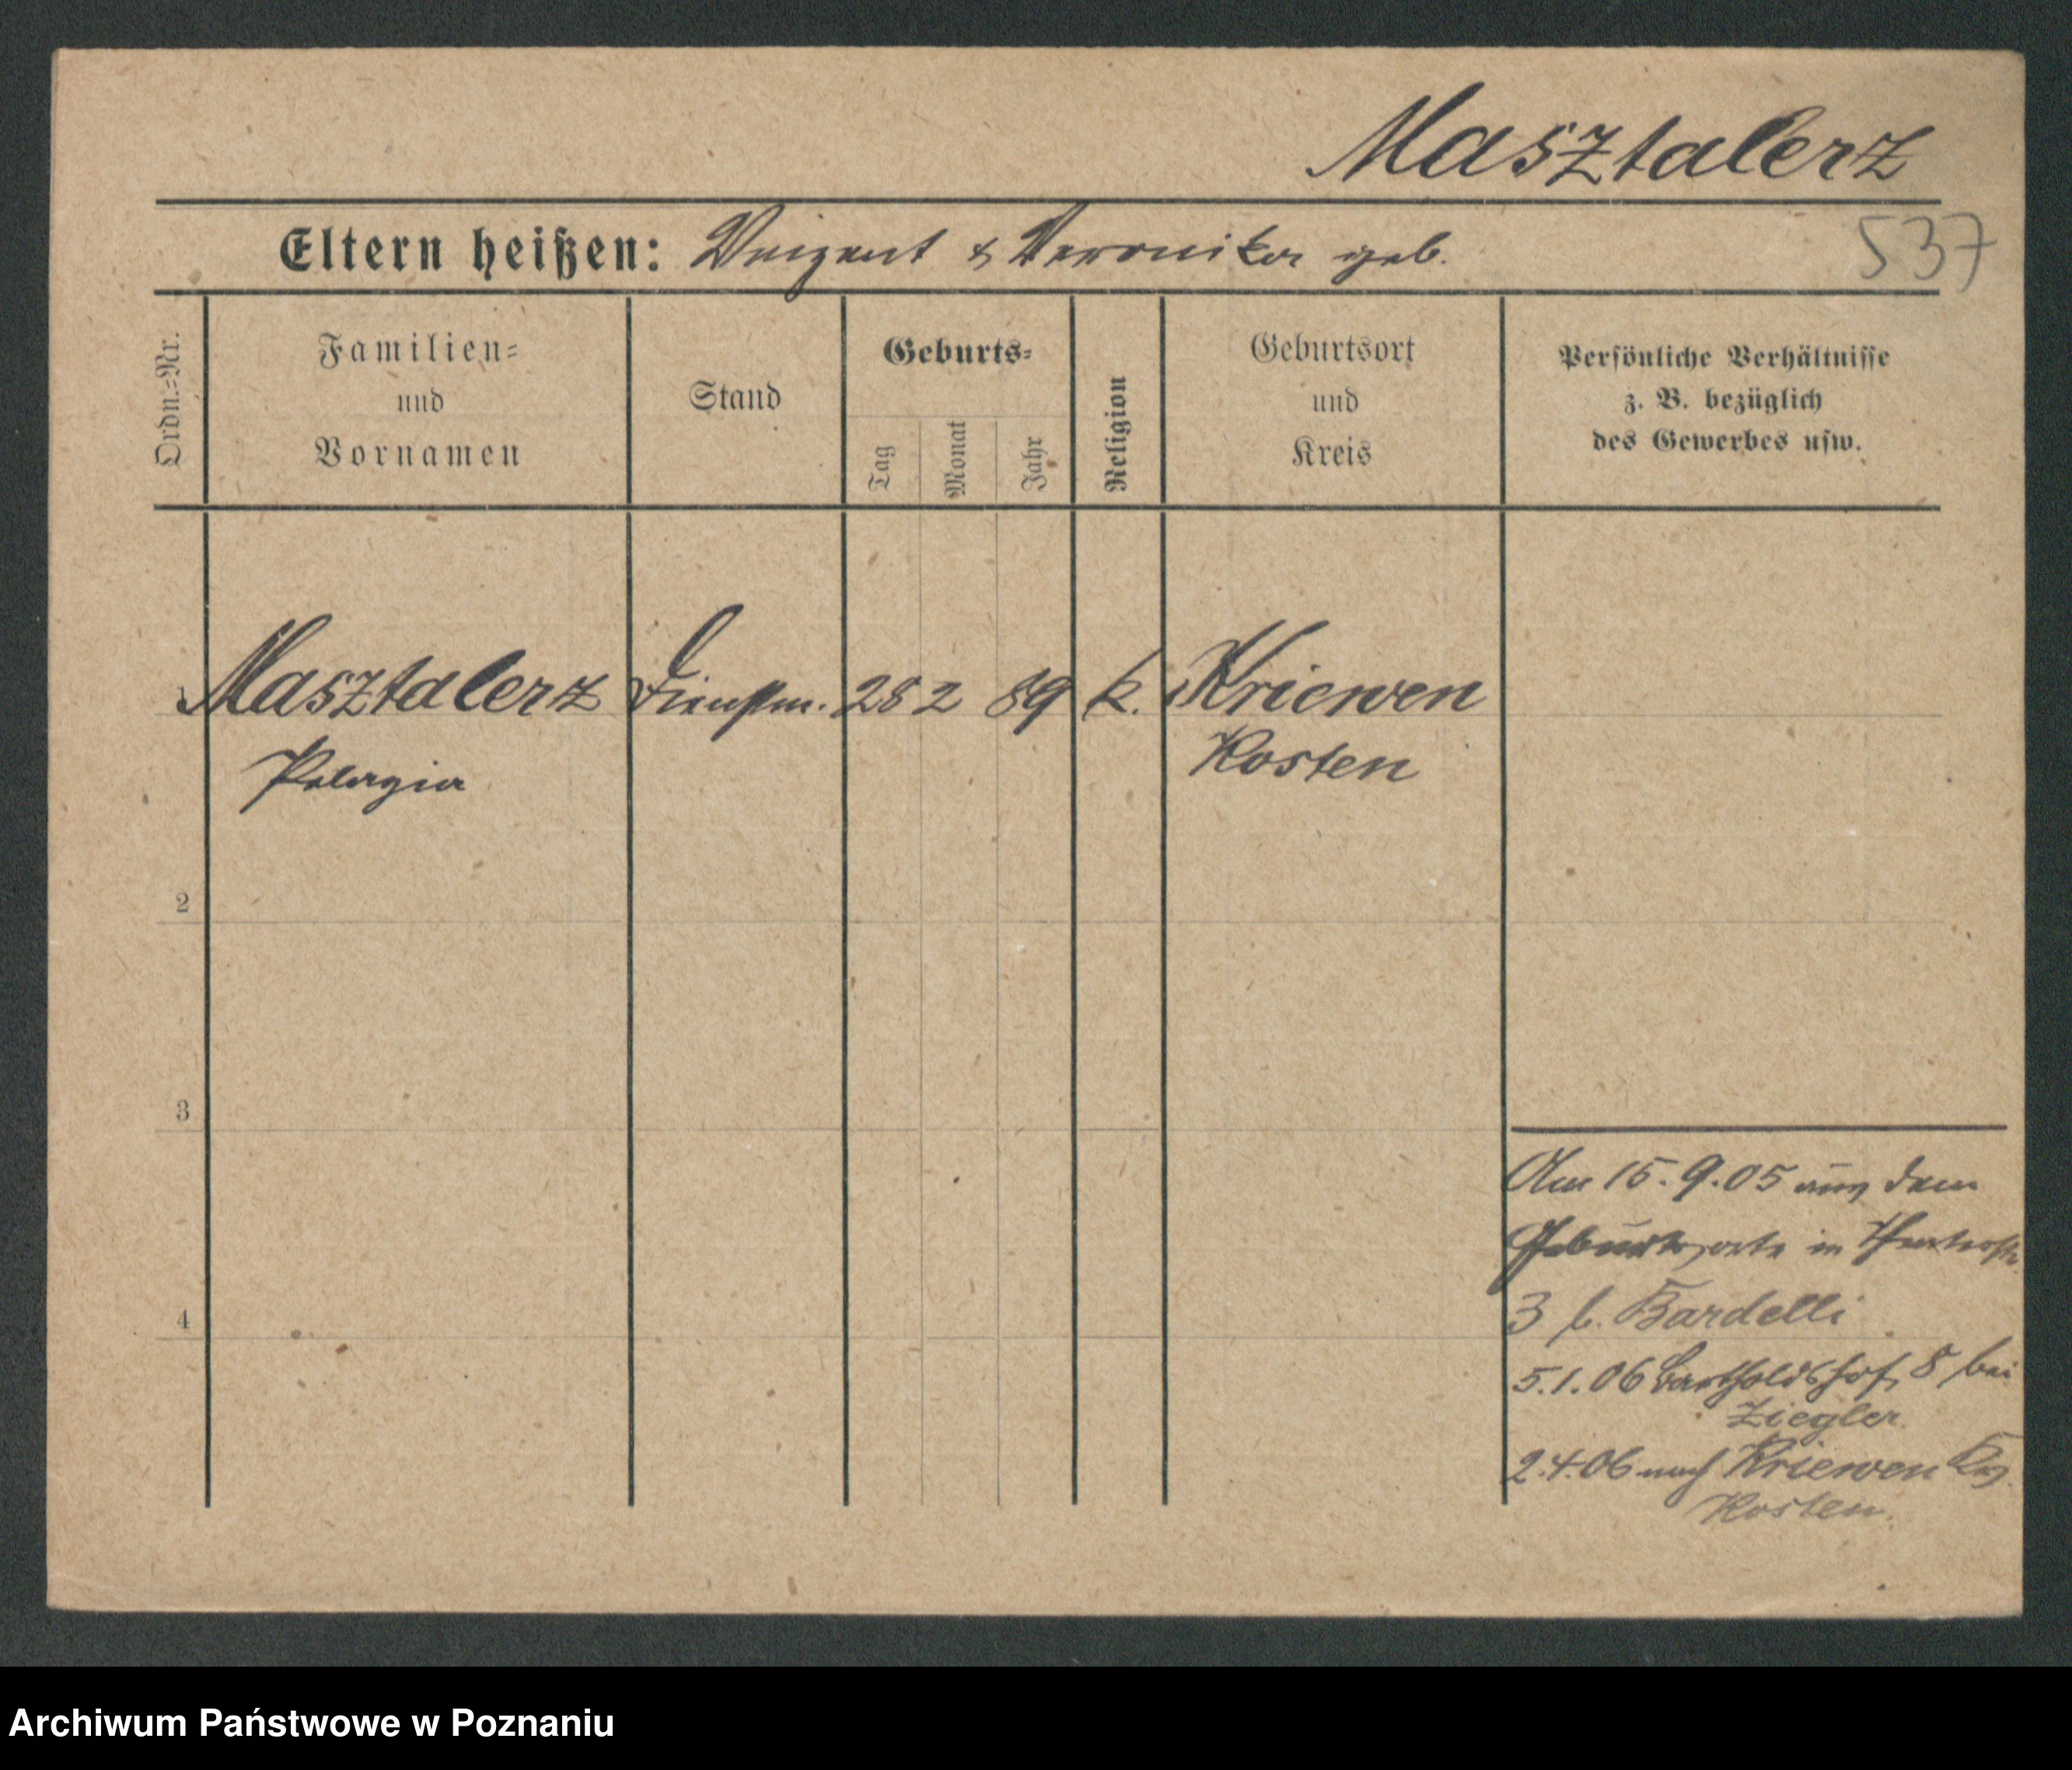 Masztalerz
Eltern heißen: Vinzent & Veronika geb.
537
Ordn.-Nr.
Familien-
und
Vornamen
Stand
Geburts-
Tag
Monat
Jahr
Religion
Geburtsort
und
Kreis
Persönliche Verhältnisse
z. B. bezüglich
des Gewerbes usw.
1 Masztalerz Dienstm. 28 2 89 k. Kriewen
Pelagia Kosten
2
3
4
Am 15.9.05 aus dem
Geburtsorte in
3 b. Bardelli
5.1.06 Bartholdshof 8 bei
Ziegler
2.4.06 nach Kriewen Krs.
Kosten.
Archiwum Państwowe w Poznaniu